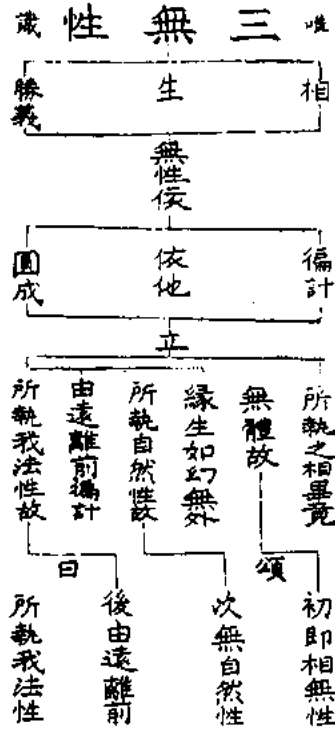 唯 三無性 識
相 生 勝義
無性依
徧計 依他 圓成
立
所執之相畢竟
無體故
緣生如幻無外
所執自然性故
由遠離前徧計
所執我法性故
頌曰
初即相無性
次無自然性
後由遠離前
所執我法性